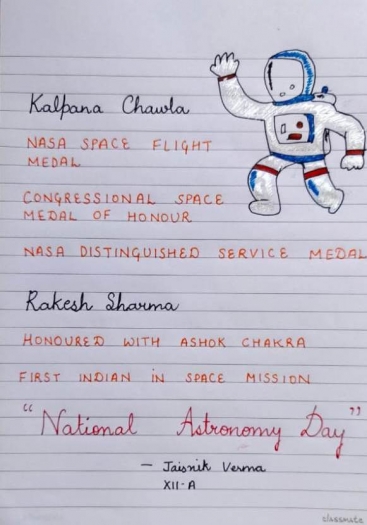 Kalpana Chawla
NASA SPACE FLIGHT
MEDAL
CONGRESSIONAL SPACE
MEDAL OF HONOUR
NASA DISTINGUISHED SERVICE MEDAL
Rakesh Sharma
HONOURED WITH ASHOK CHAKRA
FIRST INDIAN iN SPACE MISSION
"National Astronomy Day"
- Jaisnik Verma
XII-A
classmate